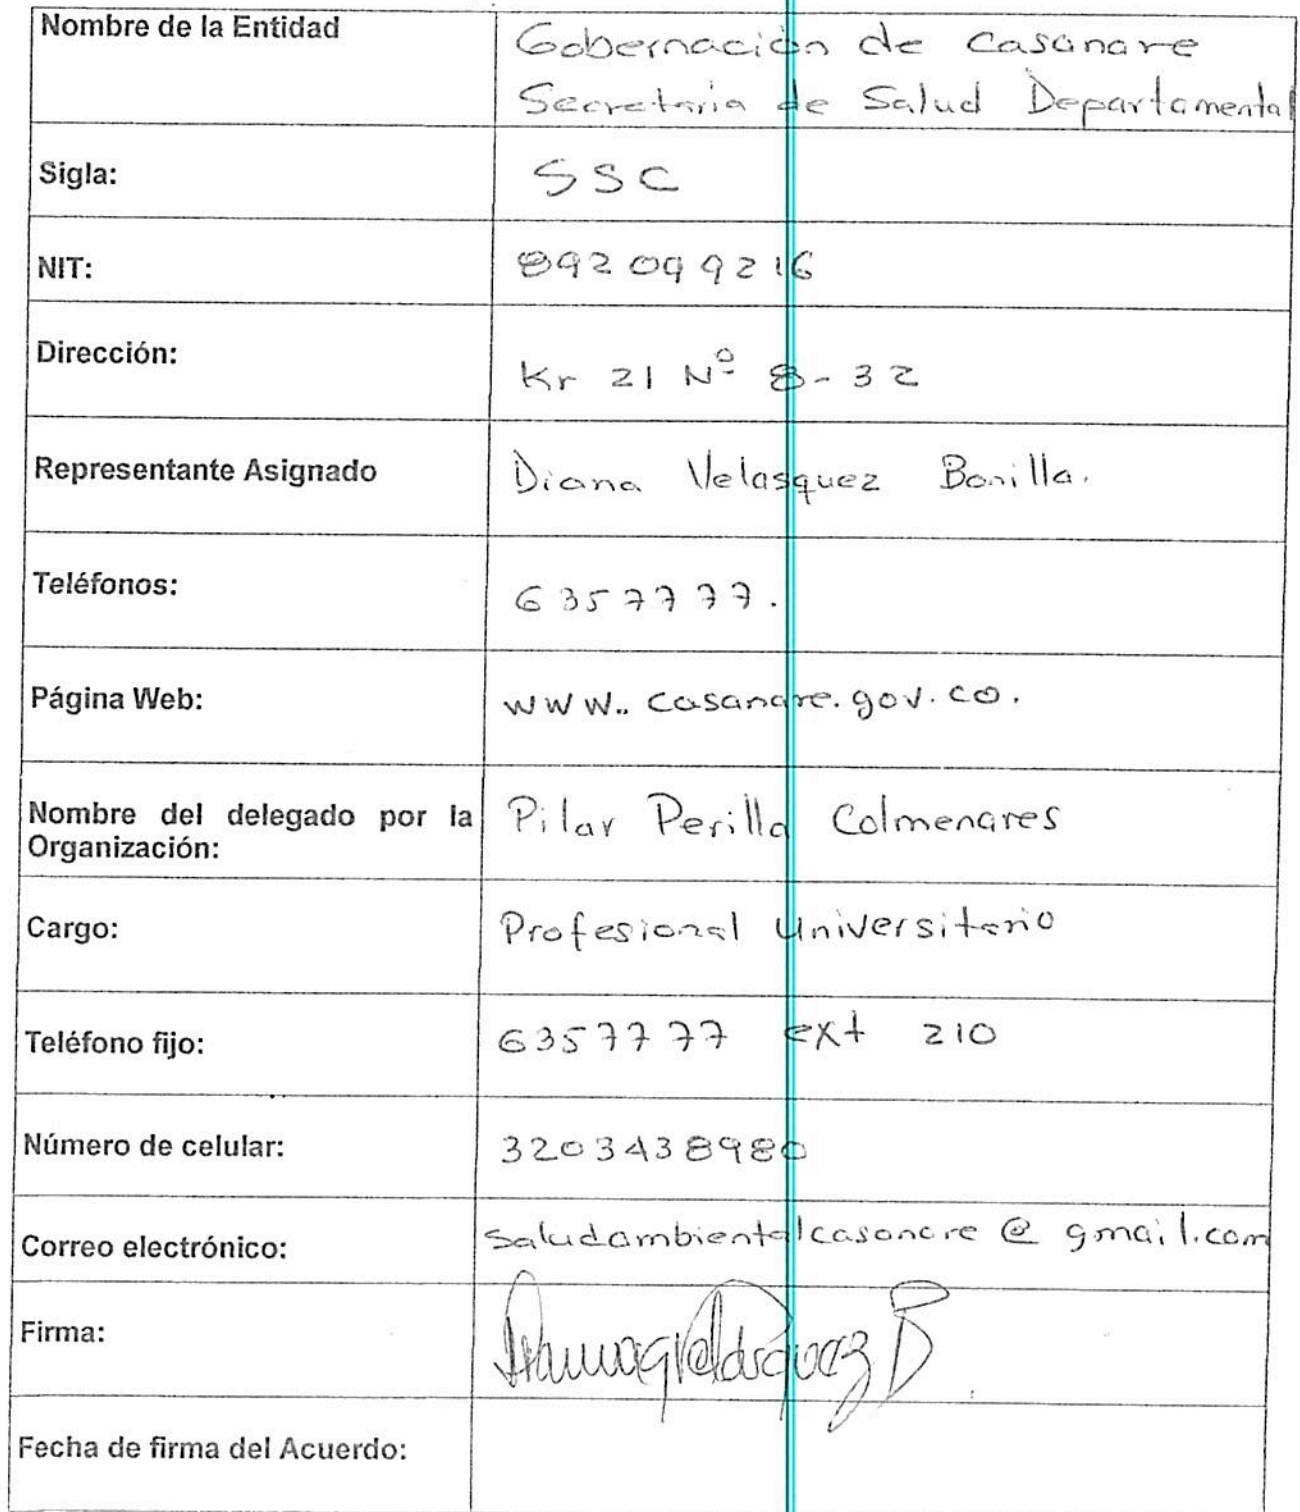 Nombre de la Entidad
Gobernación de Casanare
Secretaria de Salud Departamental
Sigla:
SSC
NIT:
892099216
Dirección:
Kr 21 Nº 8-32
Representante Asignado
Diana Velasquez Bonilla.
Teléfonos:
6357777.
Página Web:
www.. casanare.gov.co.
Nombre del delegado por la
Organización:
Pilar Perilla Colmenares
Cargo:
Profesional Universitario
Teléfono fijo:
6357777 ext 210
Número de celular:
3203438980
Correo electrónico:
saludambientalcasanare@gmail.com
Firma:
Fecha de firma del Acuerdo: